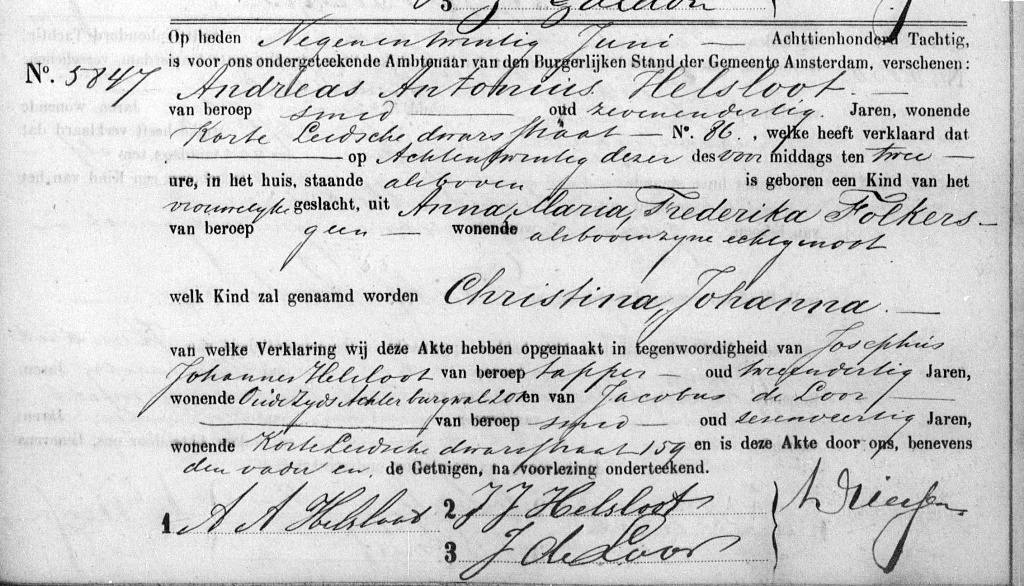 Op heden Negenentwintig Juni — Achttienhonderd Tachtig,
is voor ons ondergeteekende Ambtenaar van den Burgerlijken Stand der Gemeente Amsterdam, verschenen:
No. 5847 Andreas Antonius Helsloot. —
van beroep smid — oud zevenendertig. Jaren, wonende
Korte Leidsche dwarsstraat — No. 86., welke heeft verklaard dat
— op Achtentwintig dezer des voor middags ten twee —
ure, in het huis, staande alsboven — is geboren een Kind van het
vrouwelijke geslacht, uit Anna, Maria, Frederika Folkers —
van beroep geen — wonende alsboven zijne echtgenoot
welk Kind zal genaamd worden Christina, Johanna. —
van welke Verklaring wij deze Akte hebben opgemaakt in tegenwoordigheid van Josephus
Johannes Helsloot van beroep tapper — oud tweeendertig Jaren,
wonende Oudezyds Achterburgwal 201 en van Jacobus de Loor —
van beroep smid — oud zesenveertig Jaren,
wonende Korte Leidsche dwarsstraat 159 en is deze Akte door ons, benevens
den vader en de Getuigen, na voorlezing onderteekend.
1 A A Helsloot 2 J J Helsloot
3 J de Loor